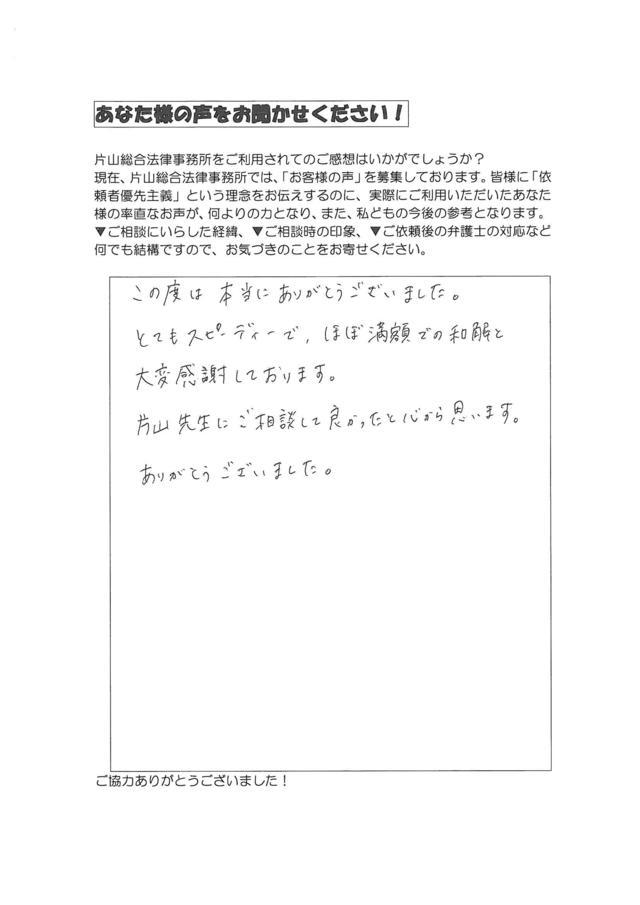 あなた様の声をお聞かせください！
片山総合法律事務所をご利用されてのご感想はいかがでしょうか？
現在、片山総合法律事務所では、「お客様の声」を募集しております。皆様に「依
頼者優先主義」という理念をお伝えするのに、実際にご利用いただいたあなた
様の率直なお声が、何よりの力となり、また、私どもの今後の参考となります。
▼ご相談にいらした経緯、▼ご相談時の印象、▼ご依頼後の弁護士の対応など
何でも結構ですので、お気づきのことをお寄せください。
この度は 本当にありがとうございました。
とてもスピーディーで、ほぼ満額での和解と
大変感謝しております。
片山先生にご相談して良かったと心から思います。
ありがとうございました。
ご協力ありがとうございました！